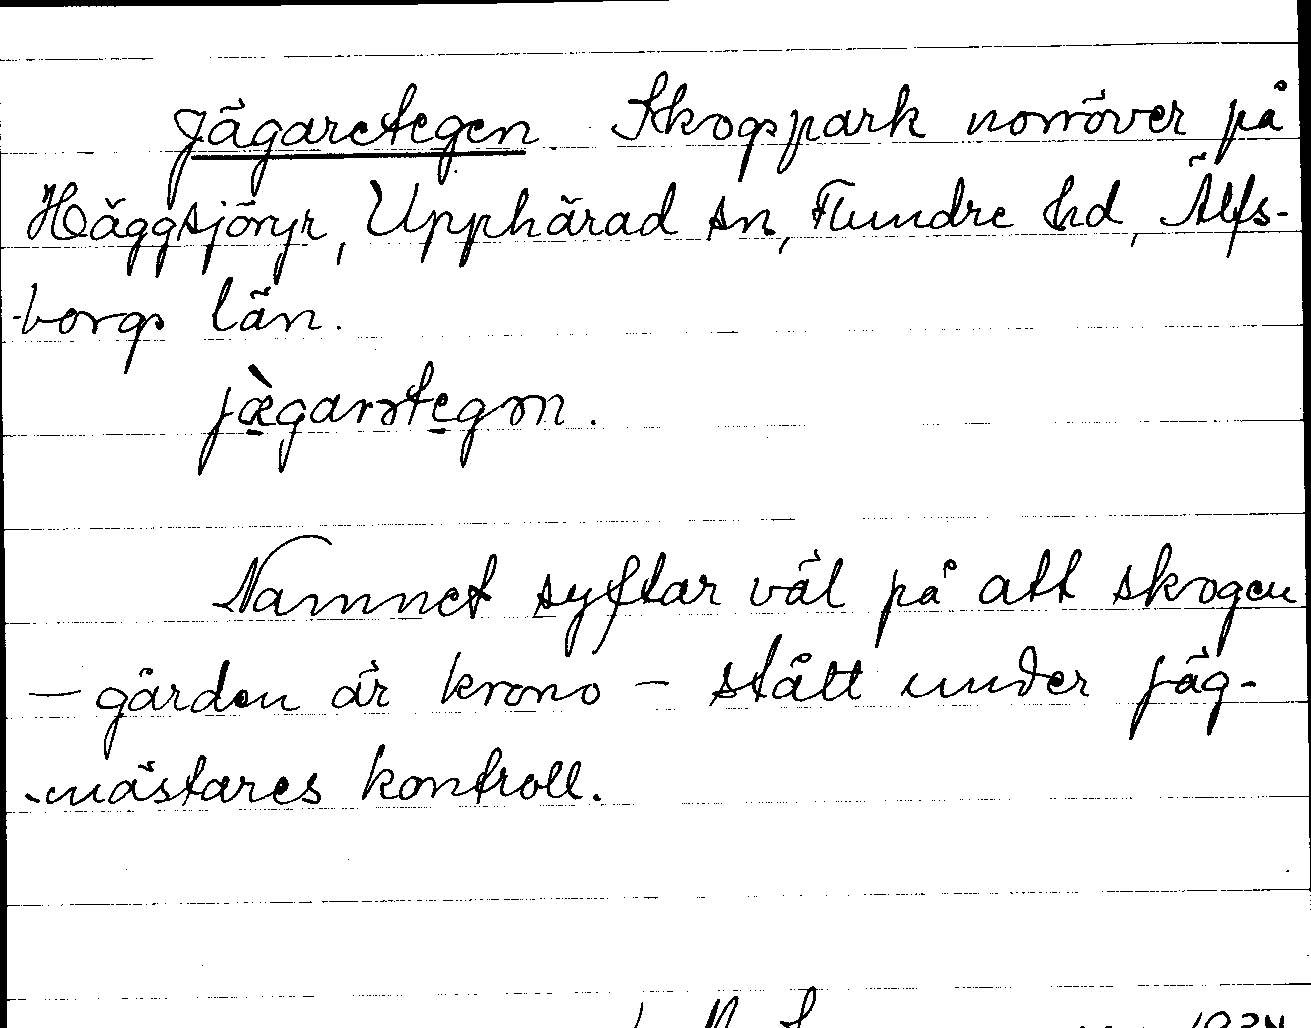 Jägaretegen. Skogspark norröver på
Häggsjöryr, Upphärad sn, Flundre hd, Älfs-
borgs län.
jæ̀garətegən.
Namnet syftar väl på att skogen
— gården är krono — stått under jäg-
mästares kontroll.